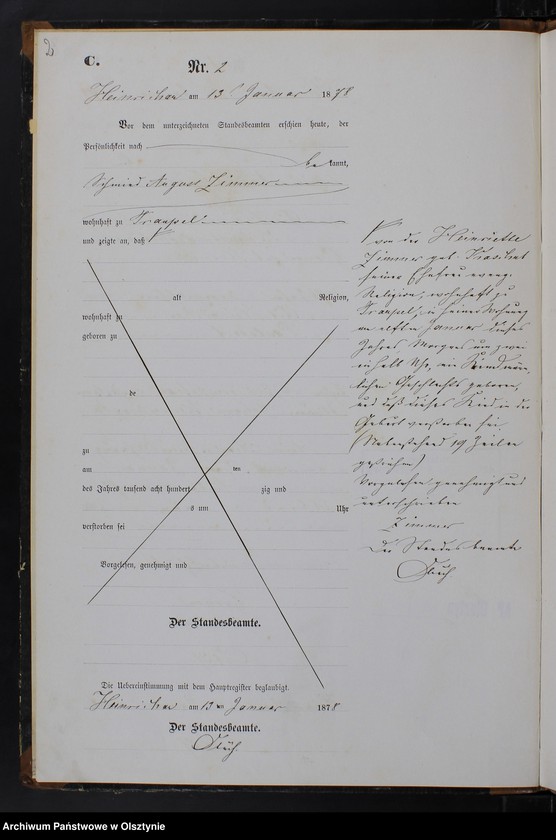 2
C.
Nr. 2
Heinrichau am 13 Januar 1878
Vor dem unterzeichneten Standesbeamten erschien heute, der
Persönlichkeit nach
bekannt,
Schmied August Zimmer
wohnhaft zu Traupel
und zeigte an, daß
von der Henriette
Zimmer geb.
seiner Ehefrau evang.
Religion, wohnhaft zu
Traupel, in seiner Wohnung
am elften Januar dieses
Jahres Morgens um zwei
einhalb Uhr, ein Kind männ
lichen Geschlechts geboren,
und daß dieses Kind in der
Geburt verstorben sei.
(Nebenstehend 19 Zeilen
gestrichen)
Vorgelesen, genehmigt und
unterschrieben
Zimmer
Der Standesbeamte
alt Religion,
wohnhaft zu
geboren zu
de
zu
am ten
des Jahres tausend acht hundert zig und
s um Uhr
verstorben sei
Vorgelesen, genehmigt und
Der Standesbeamte.
Die Uebereinstimmung mit dem Hauptregister beglaubigt.
Heinrichau am 13 ten Januar 1878
Der Standesbeamte.
Archiwum Państwowe w Olsztynie